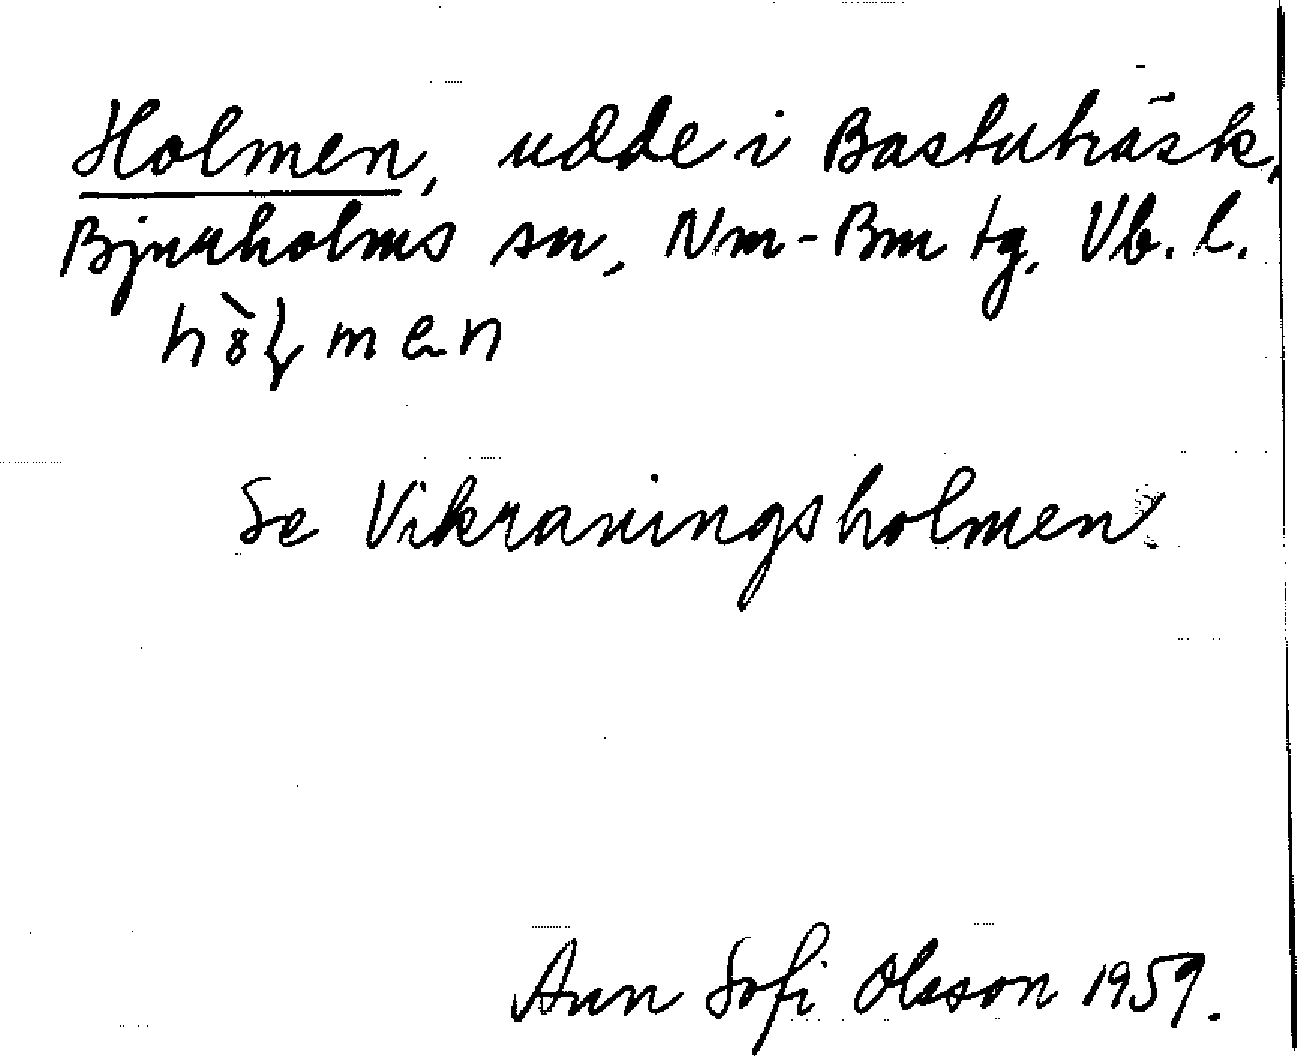 Holmen, udde i Bastuträsk,
Bjurholms sn, Nm-Bm tg, Vb. l.
Se Vikraningsholmen.
Ann Sofi Olsson 1959.